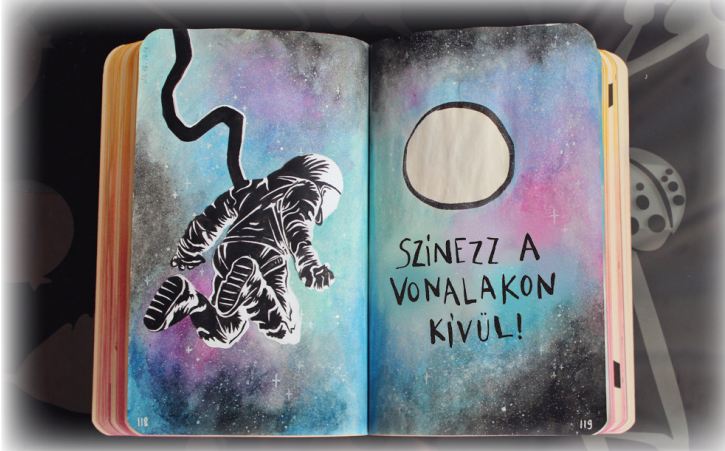 SZÍNEZZ A
VONALAKON
KÍVÜL!
118
119